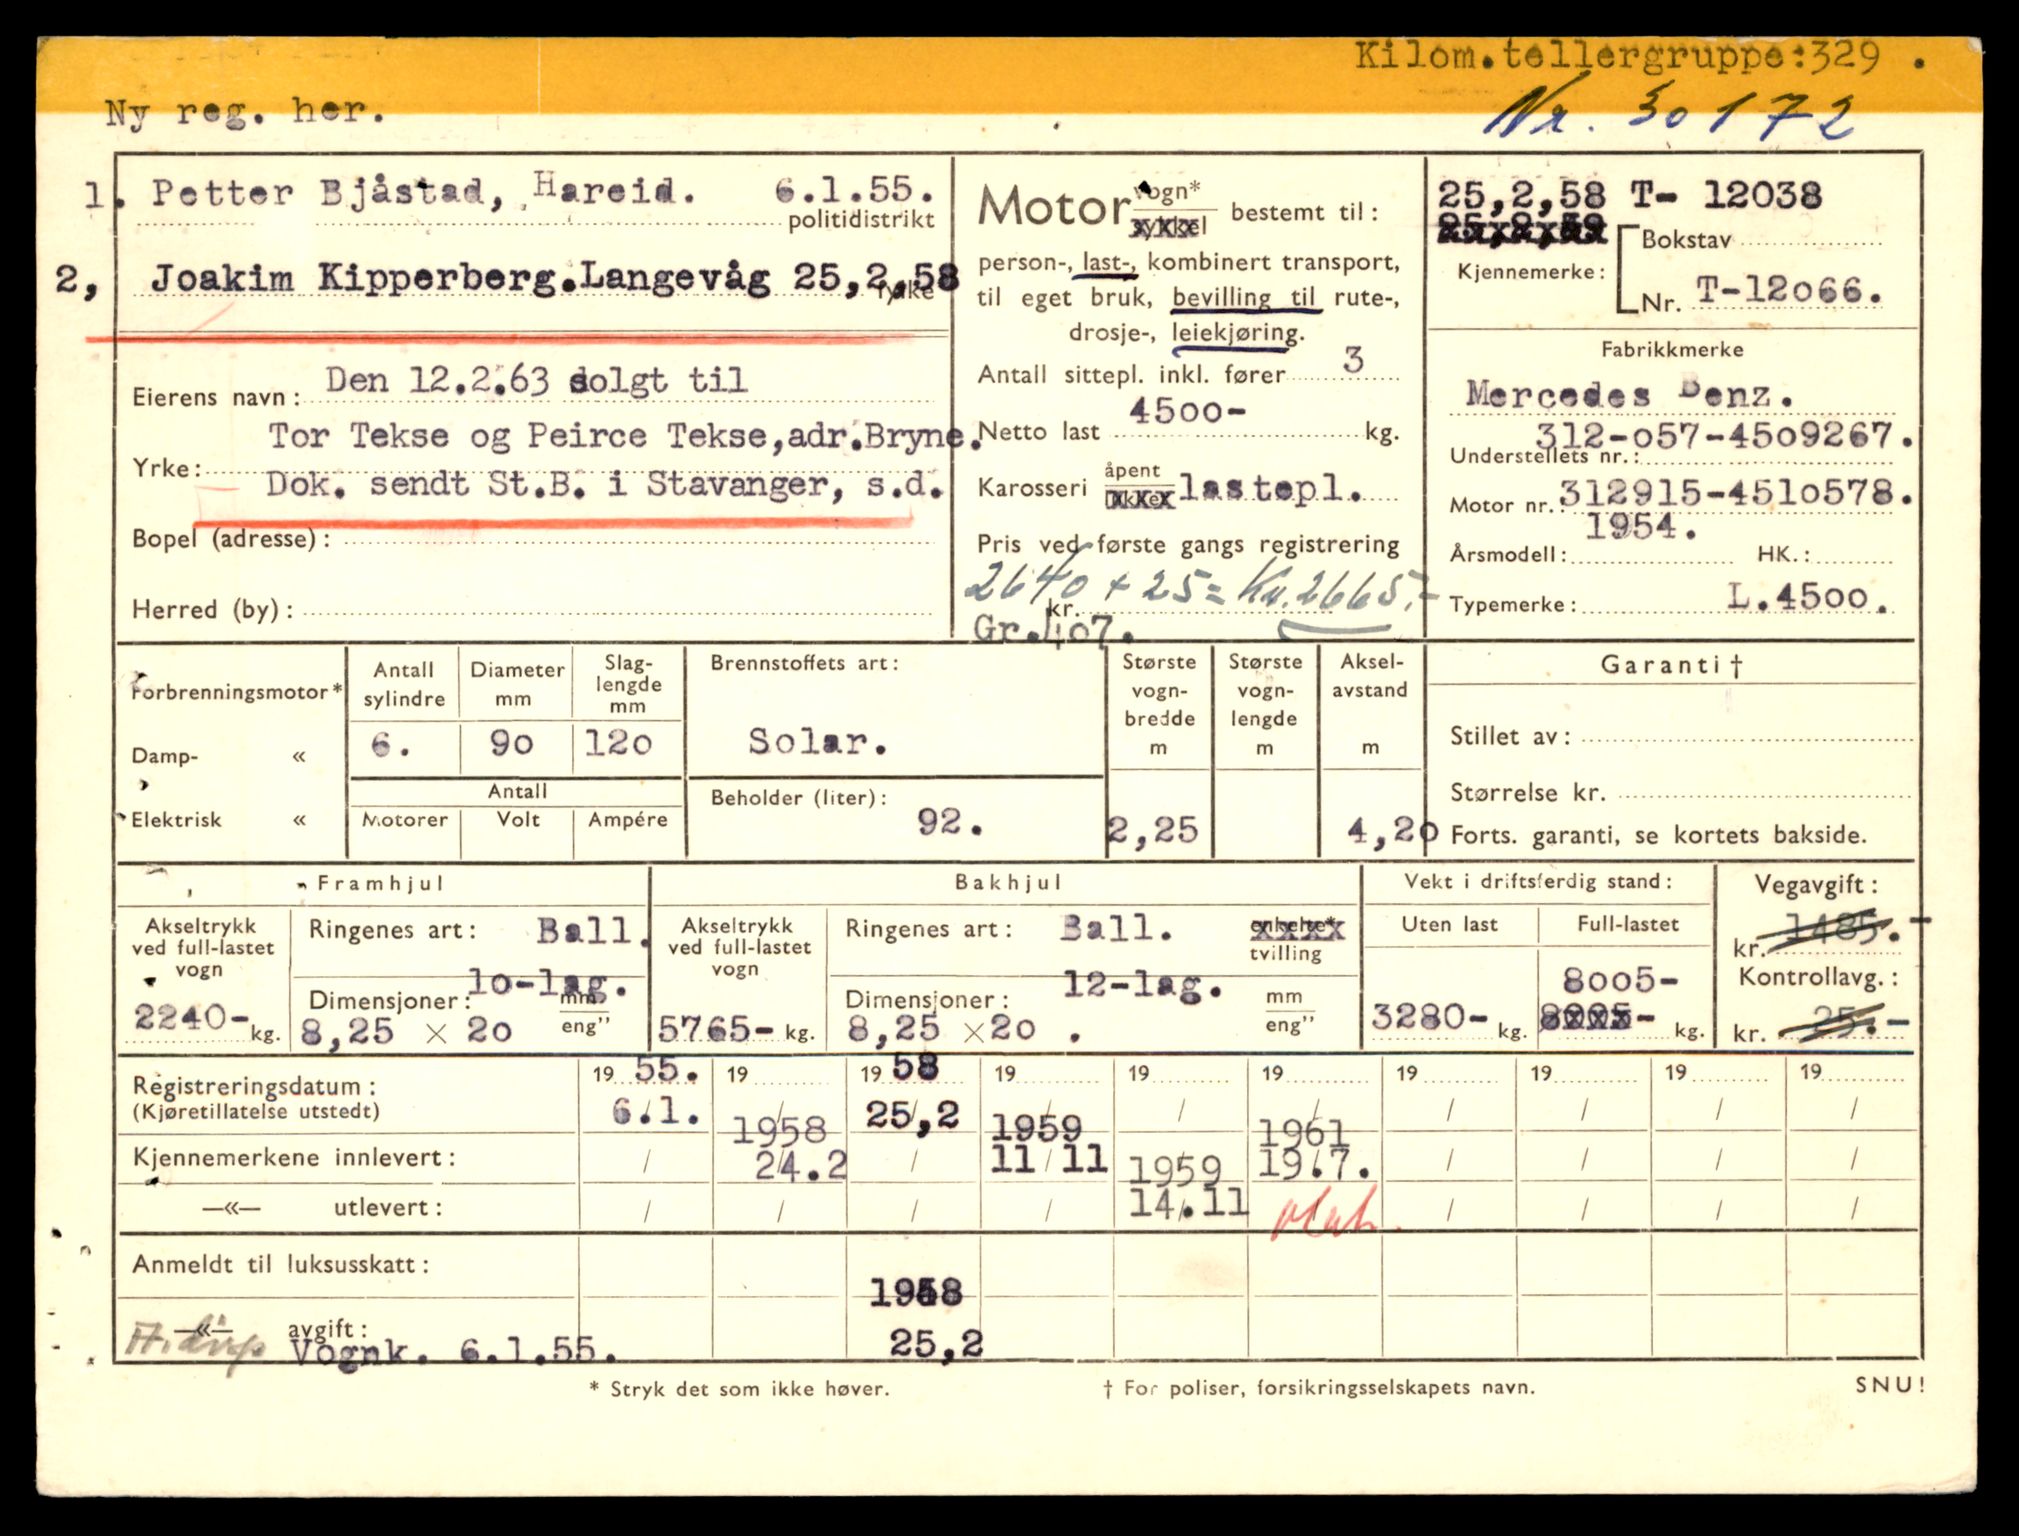 Kilom.tellergruppe:329 .
Ny reg. her.
Nr. 30172
1. Petter Bjåstad, Hareid. 6.1.55.
politidistrikt
2, Joakim Kipperberg.Langevåg 25,2,58
fylke
Eierens navn: Den 12.2.63 solgt til
Tor Tekse og Peirce Tekse,adr.Bryne.
Yrke:
Dok. sendt St.B. i Stavanger, s.d.
Bopel (adresse):
Herred (by):
Motor vogn*
sykkel bestemt til:
person-, last-, kombinert transport,
til eget bruk, bevilling til rute-,
drosje-, leiekjøring.
Antall sittepl. inkl. fører 3
Netto last 4500- kg.
Karosseri åpent lastepl.
Pris ved første gangs registrering
2640 + 25 = Kr. 2665.-
kr.
Gr.407.
25,2,58 T- 12038
Kjennemerke: Bokstav
Nr. T-12066.
Fabrikkmerke
Mercedes Benz.
312-057-4509267.
Understellets nr.:
Motor nr.: 312915-4510578.
1954.
Årsmodell: HK.:
Typemerke: L.4500.
Forbrenningsmotor*
Damp- «
Elektrisk «
Antall sylindre
Diameter mm
Slag-
lengde
mm
6. 90 120
Antall
Motorer Volt Ampére
Brennstoffets art:
Solar.
Beholder (liter):
92.
Største
vogn-
bredde
m
2,25
Største
vogn-
lengde
m
Aksel-
avstand
m
4,20
Garanti †
Stillet av:
Størrelse kr.
Forts. garanti, se kortets bakside.
Framhjul
Akseltrykk
ved full-lastet
vogn
2240- kg.
Ringenes art: Ball.
10-lag.
Dimensjoner: mm
8,25 × 20 eng"
Bakhjul
Akseltrykk
ved full-lastet
vogn
5765- kg.
Ringenes art: Ball. enkelte*
tvilling
12-lag.
Dimensjoner: mm
8,25 × 20 . eng"
Vekt i driftsferdig stand:
Uten last Full-lastet
8005-
3280- kg. 8005- kg.
Vegavgift:
kr. 1485.-
Kontrollavg.:
kr. 25.-
Registreringsdatum: 19 55. 19 19 58 19 19 19 19 19 19 19
(Kjøretillatelse utstedt) 6/1. / 25,2 / / / / / / /
1958 1959 1961
Kjennemerkene innlevert: / 24.2 / 11/11 1959 19.7. / / / /
—«— utlevert: / / / / 14.11 / / / /
Anmeldt til luksusskatt:
1958
—«— avgift:
Vognk. 6.1.55. 25,2
* Stryk det som ikke høver.
† For poliser, forsikringsselskapets navn.
SNU!